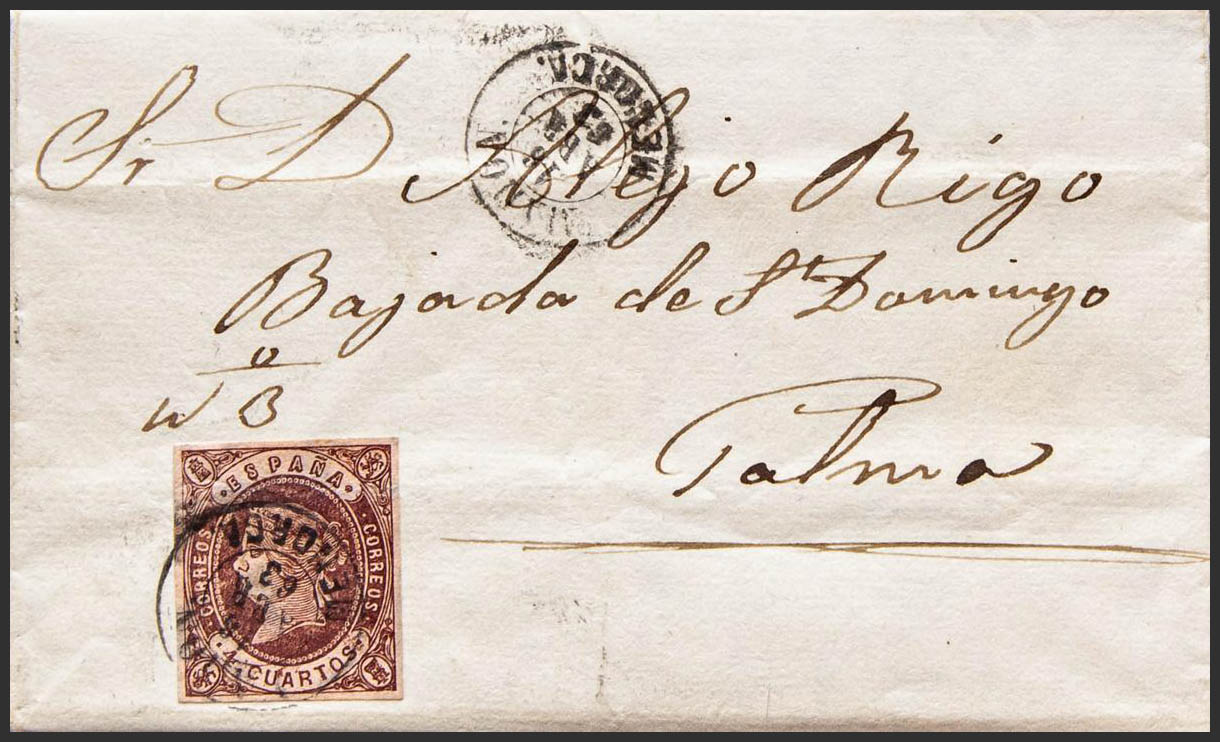 MENORCA.
63
Sr D Alejo Rigo
Bajada de Sto Domingo
o
Palma
ESPAÑA
CORREOS
CORREOS
4 CUARTOS
MENORCA
63